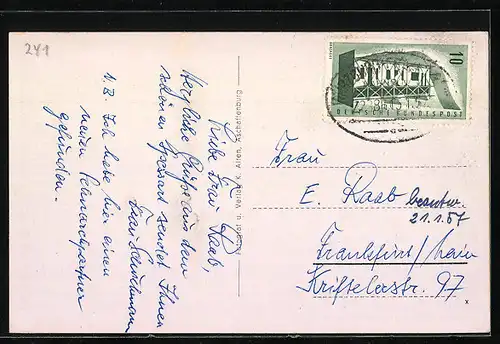 241
Liebe Frau Raab,
Herzliche Grüße aus dem
schönen Spessart sendet Ihnen
Frau
N.B. Ich habe hier einen
neuen
gefunden.
10
DEUTSCHE BUNDESPOST
Frau
E. Raab
beantw.
21.1.57
Frankfurt/Main
Kriftelerstr. 97
x